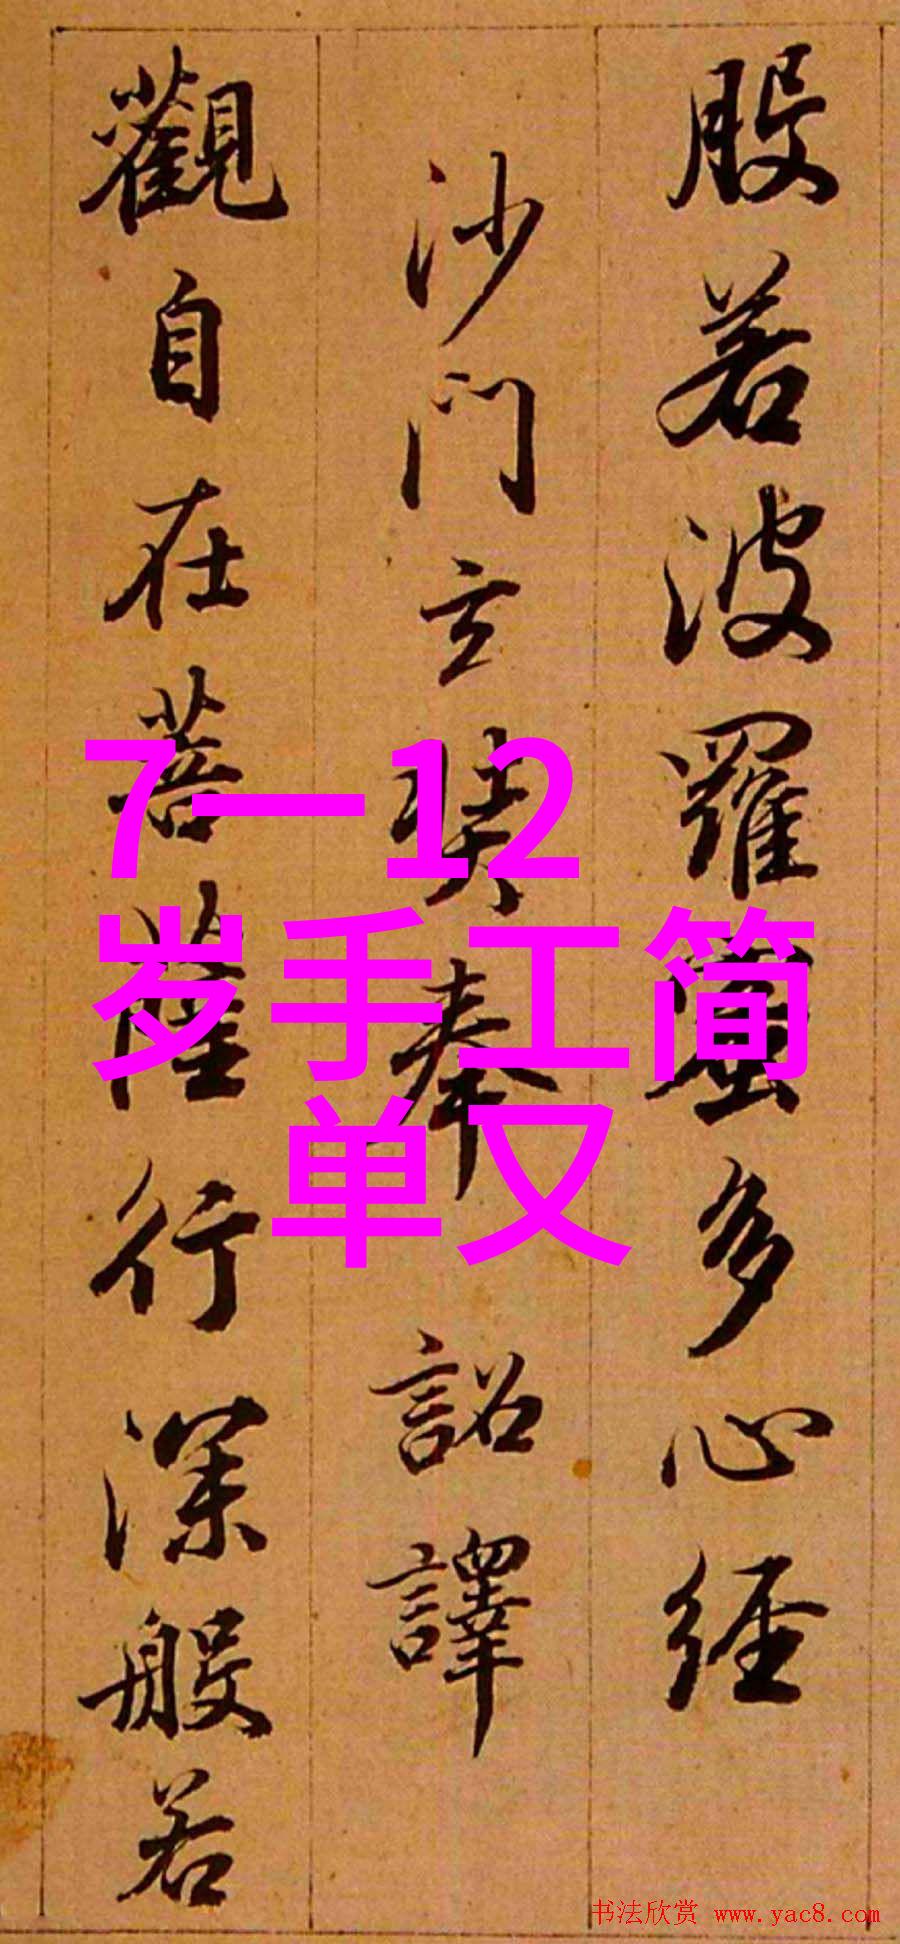 般若波羅蜜多心経
沙門玄奘奉詔譯
觀自在菩薩行深般若
7一12
岁手工简
单又
书法欣赏 www.yac8.com